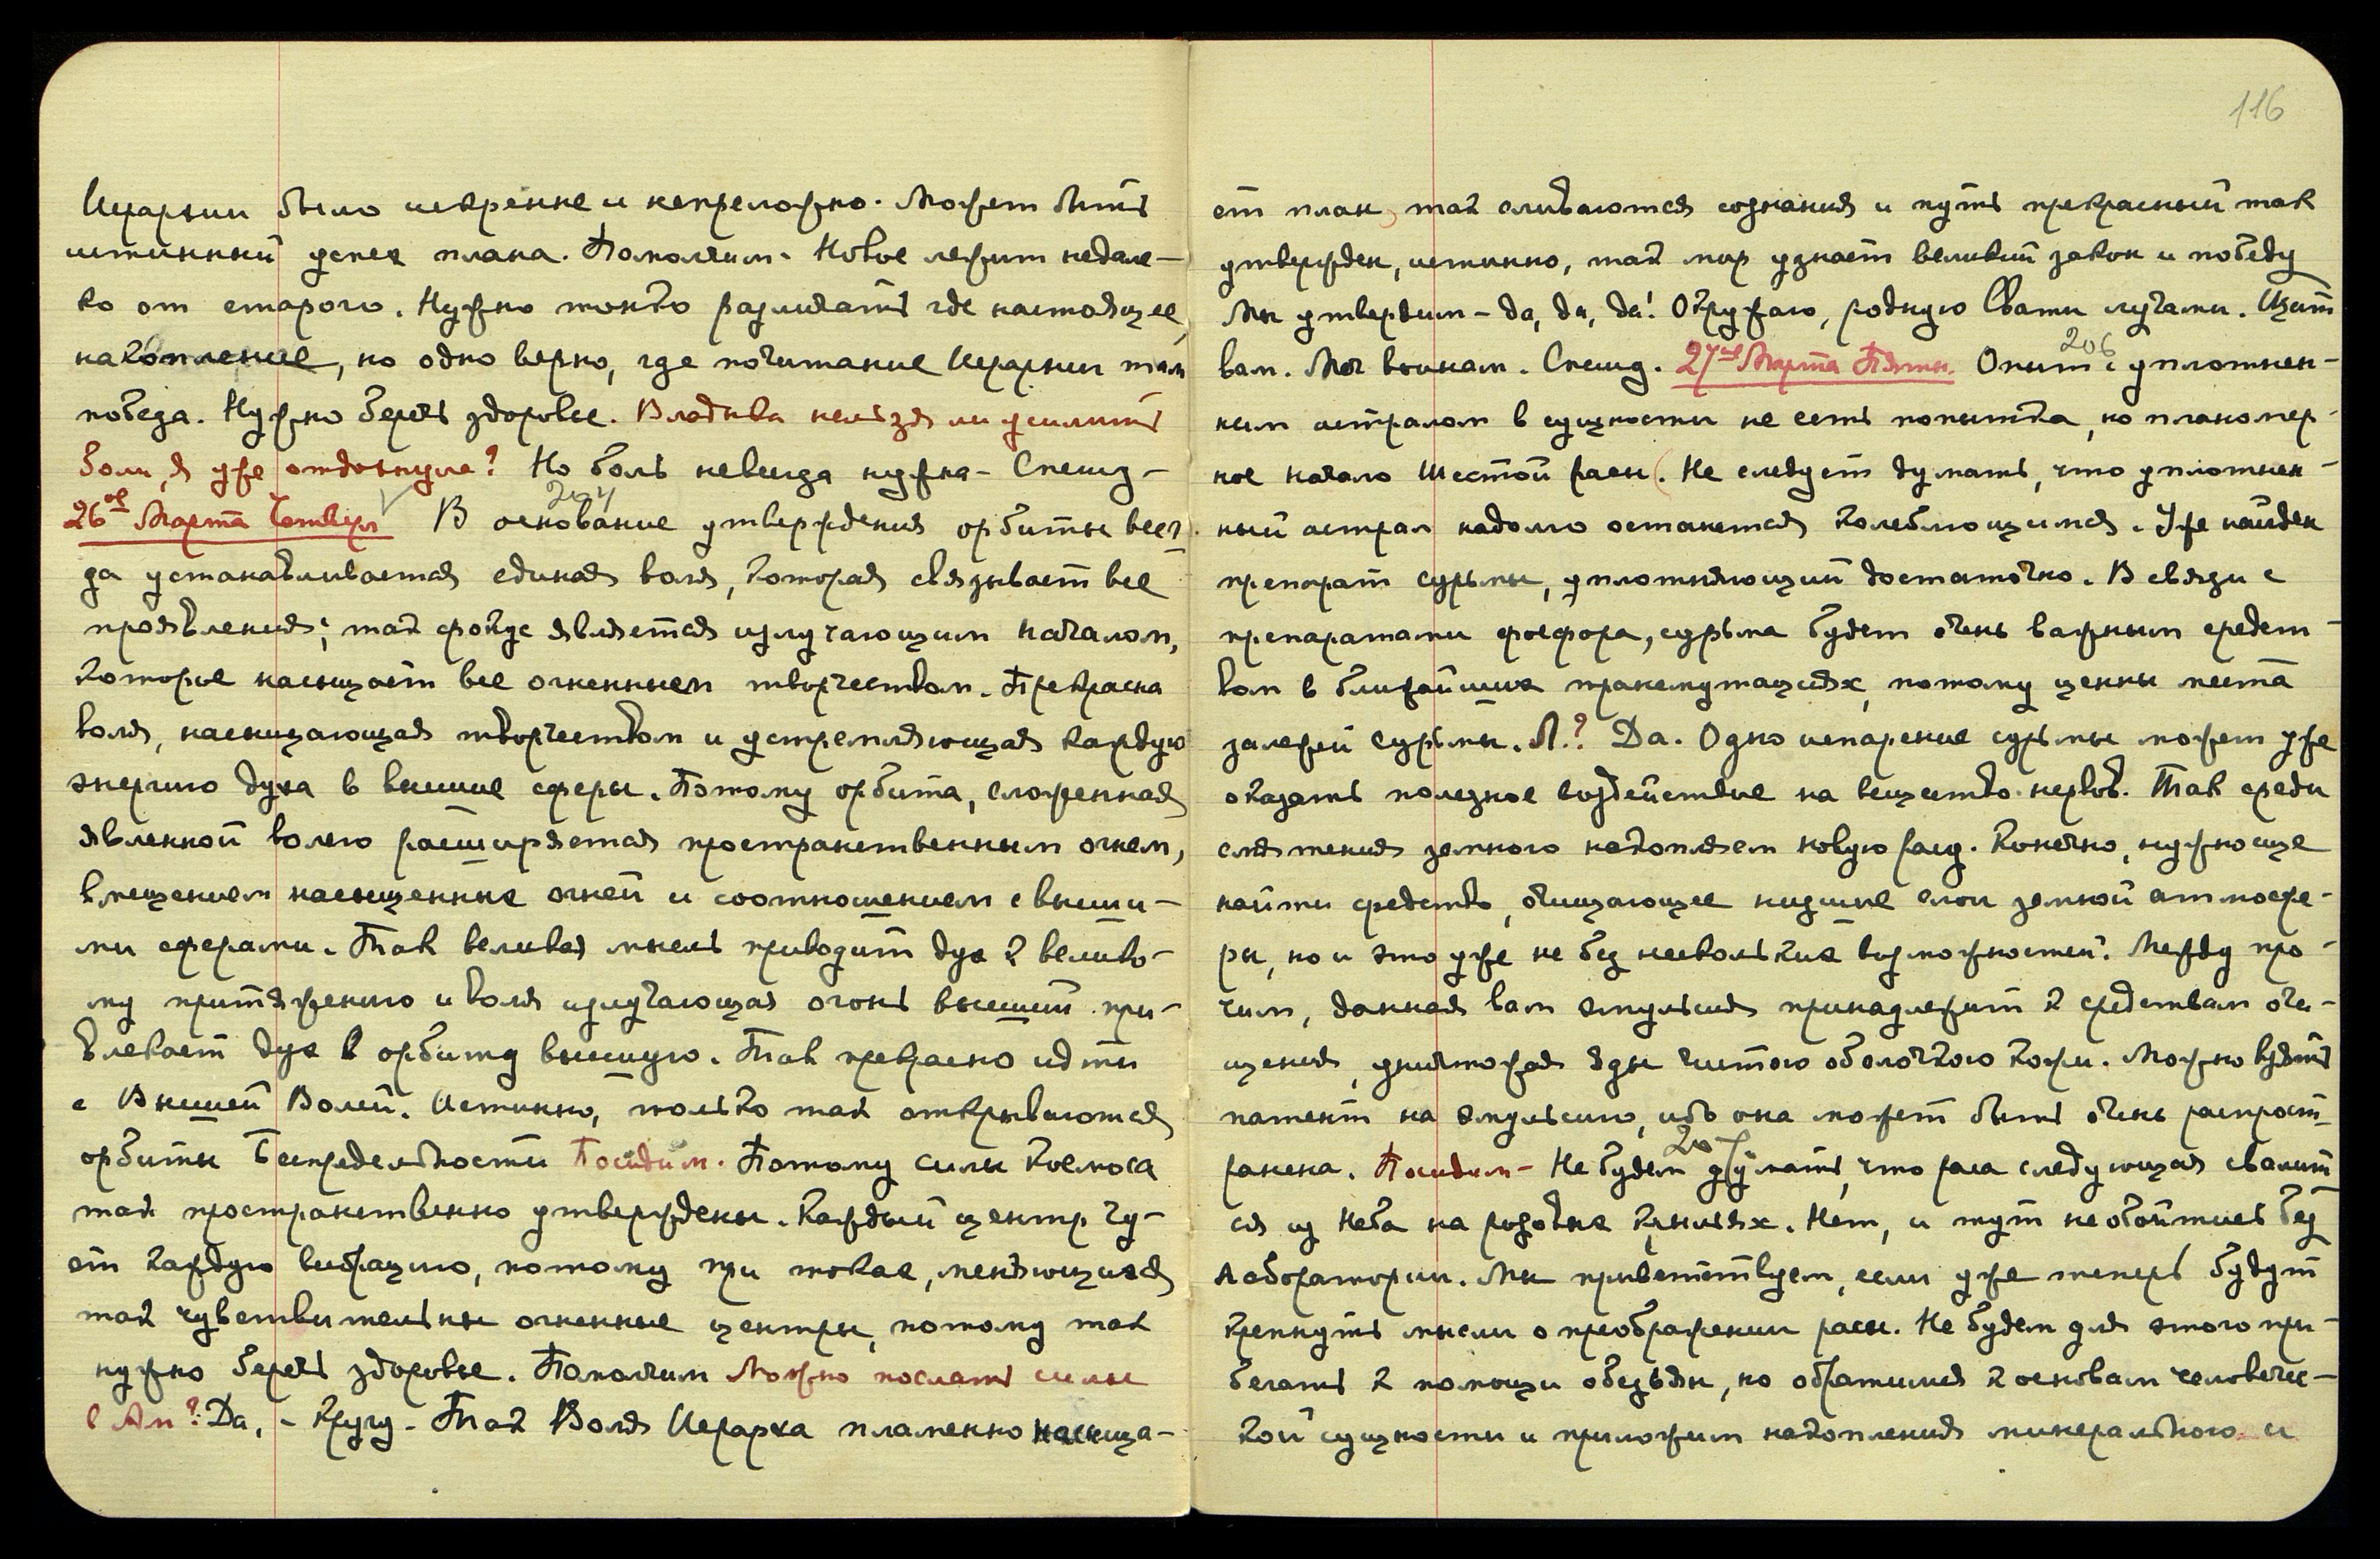 116
Иерархии было искренне и непреложно. Может быть
истинный успех плана. Помолчим. Новое лежит недале-
ко от старого. Нужно тонко различать где настоящее
накопление, но одно верно, где почитание Иерархии там
победа. Нужно беречь здоровье. Владыка нельзя ли усилить
боли, я уже отдохнула? Но боль невсегда нужна - Спешу -
204
26ое Марта Четверг В основание утверждения орбиты всег-
да устанавливается единая воля, которая связывает все
проявления; так фокус является излучающим началом,
которое насыщает все огненным творчеством. Прекрасна
воля, насыщающая творчеством и устремляющая каждую
энергию духа в высшие сферы. Потому орбита, сложенная
явленной волею расширяется пространственным огнем,
вмещением насыщенных огней и соотношением с высши-
ми сферами. Так великая мысль приводит дух к велико-
му притяжению и воля излучающая огонь высший при-
влекает дух в орбиту высшую. Так прекрасно идти
с Высшей Волей. Истинно, только так открываются
орбиты Беспредельности Посидим. Потому силы Космоса
так пространственно утверждены. Каждый центр чу-
ет каждую вибрацию, потому при токах, меняющихся
так чувствительны огненные центры, потому так
нужно беречь здоровье. Помолчим Можно послать силы
в Ам? Да, - Кручу - Так Воля Иерарха пламенно насыща-
ет план, так сливаются сознания и путь прекрасный так
утвержден, истинно, так мир узнает великий закон и победу
Мы утвердим - да, да, да! Окружаю, родную Свати лучами. Щит
206
вам. Меч воинам. Спешу. 27ое Марта Пятн. Опыт с уплотнен-
ным астралом в сущности не есть попытка, но планомер-
ное начало Шестой расы. Не следует думать, что уплотнен-
ный астрал надолго останется колеблющимся. Уже найден
препарат сурьмы, уплотняющий достаточно. В связи с
препаратами фосфора, сурьма будет очень важным средст-
вом в ближайших трансмутациях, потому ценны места
залежей сурьмы. Л.? Да. Одно испарение сурьмы может уже
оказать полезное воздействие на вещество нервов. Так среди
смятения земного накопляем новую расу. Конечно, нужно еще
найти средство, очищающее низшие слои земной атмосфе-
ры, но и это уже не без нескольких возможностей. Между про-
чим, данная вам эмульсия принадлежит к средствам очи-
щения, уничтожая яды чистою оболочкою кожи. Можно взять
патент на эмульсию, ибо она может быть очень распрост-
207
ранена. Посидим - Не будем думать, что раса следующая свалит
ся из Неба на розовых крыльях. Нет, и тут не обойтись без
лаборатории. Мы приветствуем, если уже теперь будут
крепнуть мысли о преображении расы. Не будем для этого при-
бегать к помощи обезьян, но обратимся к основам человечес-
кой сущности и приложим накопления минерального и